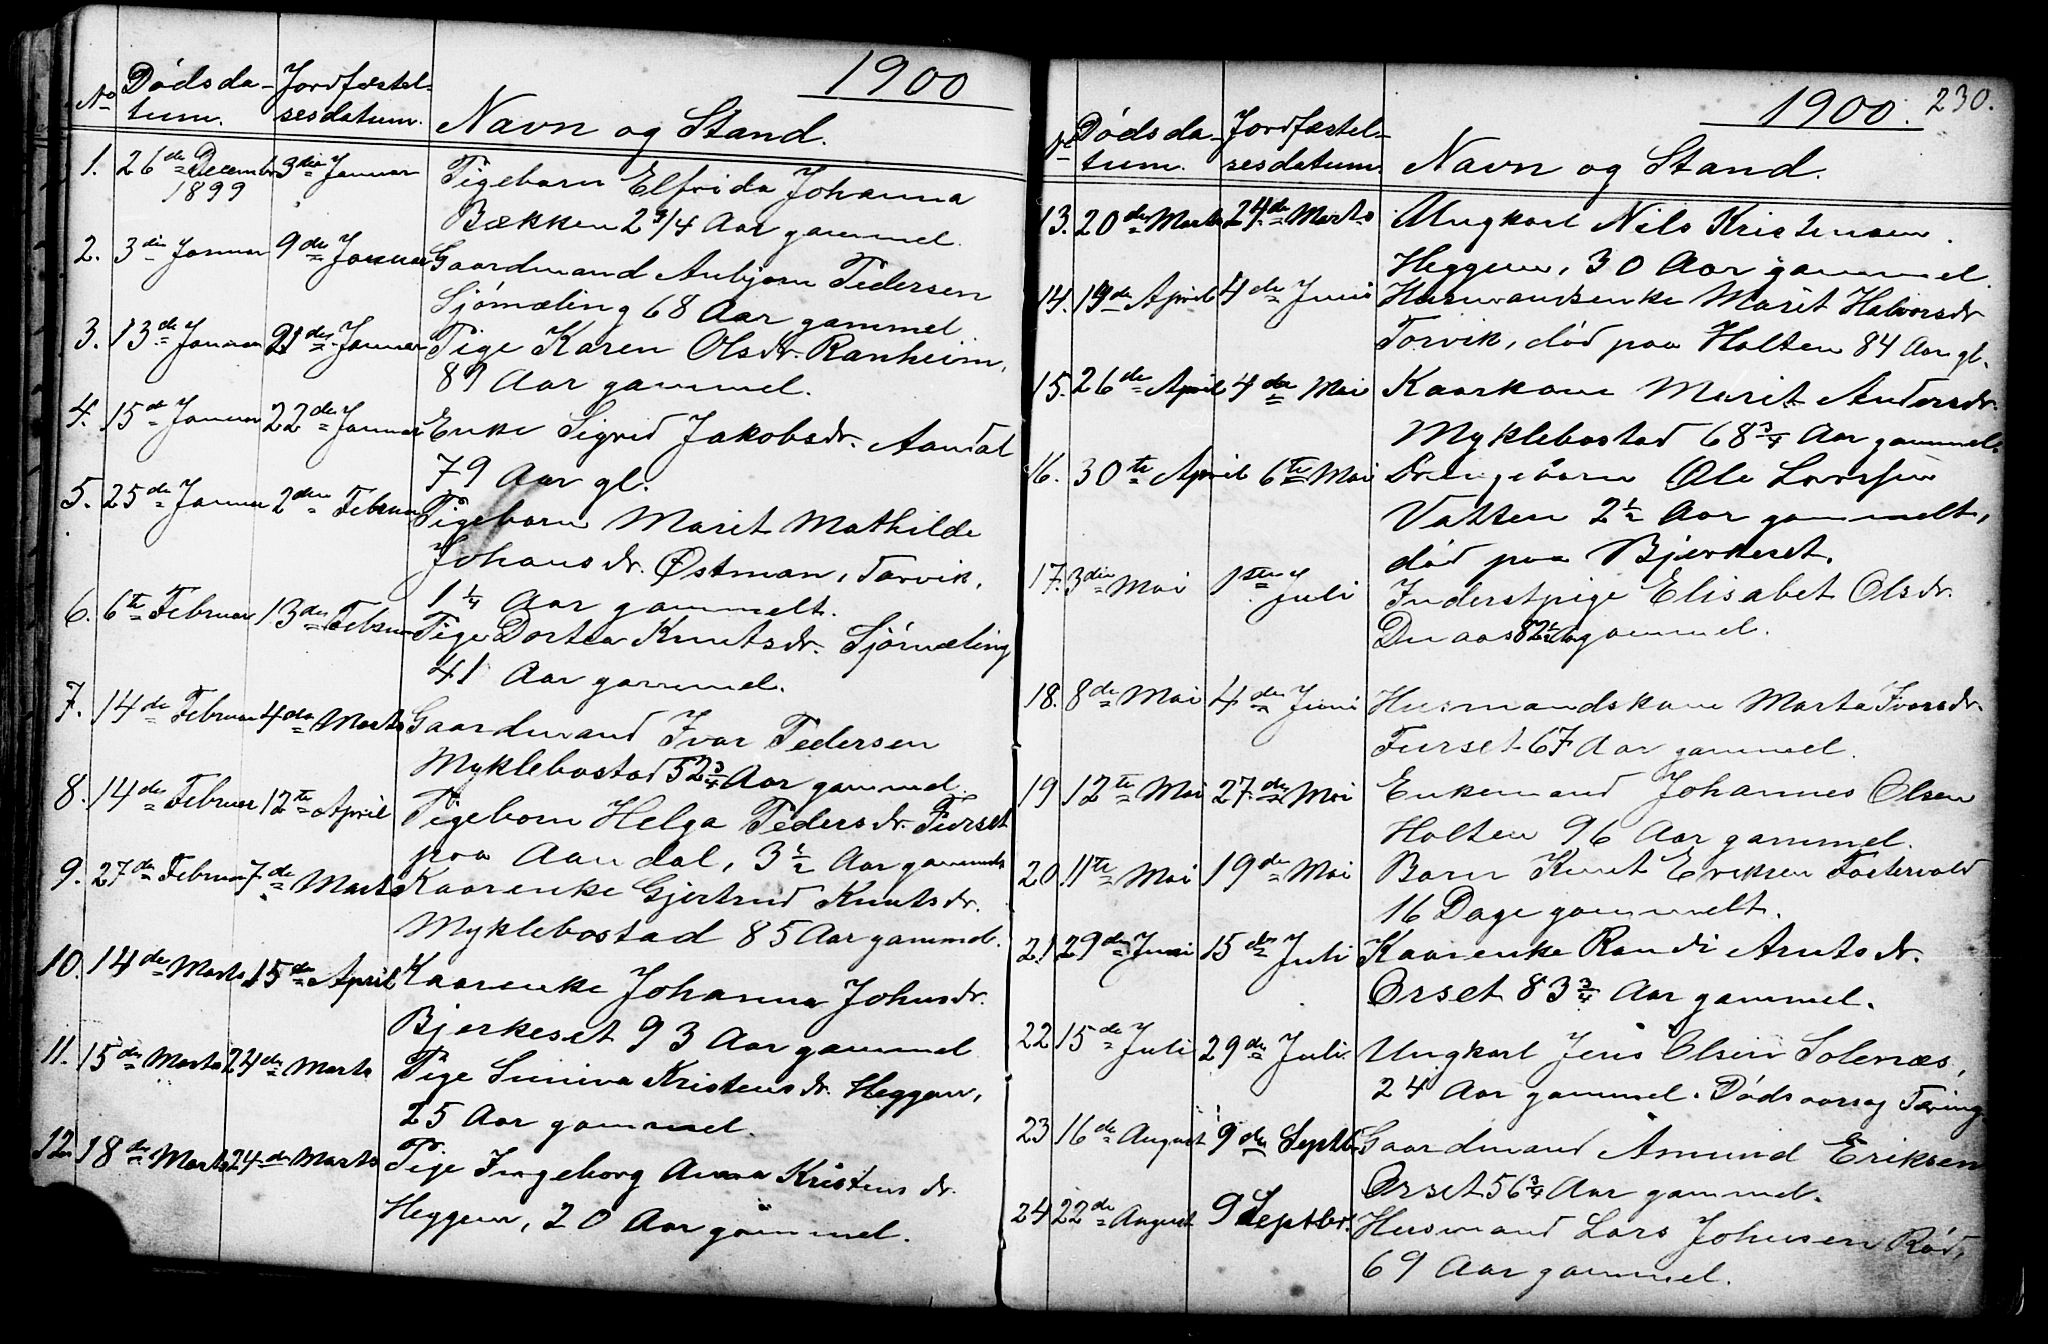 1900
No Dödsda- Jordfæstel-
tum. sesdatum. Navn og Stand.
1. 26de Decembr 3die Januar Pigebarn Elfrida Johanna
1899 Bækken 2 3/4 Aar gammel.
2. 3die Januar 9de Januar Gaardmand Anbjørn Pedersen
Sjömæling 68 Aar gammel
3. 13de Januar 21de Januar Pige Karen Olsdr. Ranheim,
89 Aar gammel.
4. 15de Januar 22de Januar Enke Sigrid Jakobsdr. Aandal
79 Aar gl.
5. 25de Januar 2den Februar Pigebarn Marit Mathilde
Johansdr. Østman, Torvik,
1 1/4 Aar gammelt.
6. 6te Februar 13de Februar Pige Dortea Knutsdr. Sjömæling
41 Aar gammel.
7. 14de Februar 4de Marts Gaardmand Ivar Pedersen
Myklebostad 52 3/4 Aar gammel.
8. 14de Februar 12te April Pigebarn Helga Pedersdr. Furset
paa Aandal, 3 1/2 Aar gammel
9. 27de Februar 7de Marts Kaarenke Gjertrud Knutsdr.
Myklebostad 85 Aar gammel.
10. 14de Marts 15de April Kaarenke Johanna Johnsdr.
Bjerkeset 93 Aar gammel
11. 15de Marts 24de Marts Pige Suniva Kristensdr. Heggem,
25 Aar gammel.
12. 18de Marts 24de Marts Pige Ingeborg Anna Kristensdr.
Heggem, 20 Aar gammel.
1900. 230.
No Dödsda- Jordfæstel-
tum. sesdatum. Navn og Stand.
13. 20de Marts 24de Marts Ungkarl Nils Kristensen
Heggem, 30 Aar gammel.
14. 19de April 4de Juni Husmandsenke Marit Halvorsdr
Torvik, död paa Holten 84 Aar gl.
15. 26de April 4de Mai Kaarkone Marit Andersdr.
Myklebostad 68 3/4 Aar gammel.
16. 30te April 6te Mai Drengebarn Ole Larssen
Vatten 2 1/2 Aar gammelt,
död paa Bjerkeset.
17. 3die Mai 1ste Juli Inderstpige Elisabet Olsdr.
Duaas 82 1/2 Aar gammel.
18. 8de Mai 4de Juni Husmandskone Marta Ivarsdr
Furset 67 Aar gammel.
19 12te Mai 27de Mai Enkemand Johannes Olsen
Holten 96 Aar gammel.
20. 11te Mai 19de Mai Barn Knut Eriksen Fostervold
16 Dage gammelt.
21 29de Juni 15de Juli Kaarenke Randi Arntsdr.
Orset 83 3/4 Aar gammel.
22 15de Juli 29de Juli Ungkarl Jens Olsen Solenæs,
24 Aar gammel. Dödsaarsag Tæring
23 16de August 9de Septb. Gaardmand Amund Eriksen
Orset 56 3/4 Aar gammel.
24 22de August 9 Septbr. Husmand Lars Johnsen Röd,
69 Aar gammel.